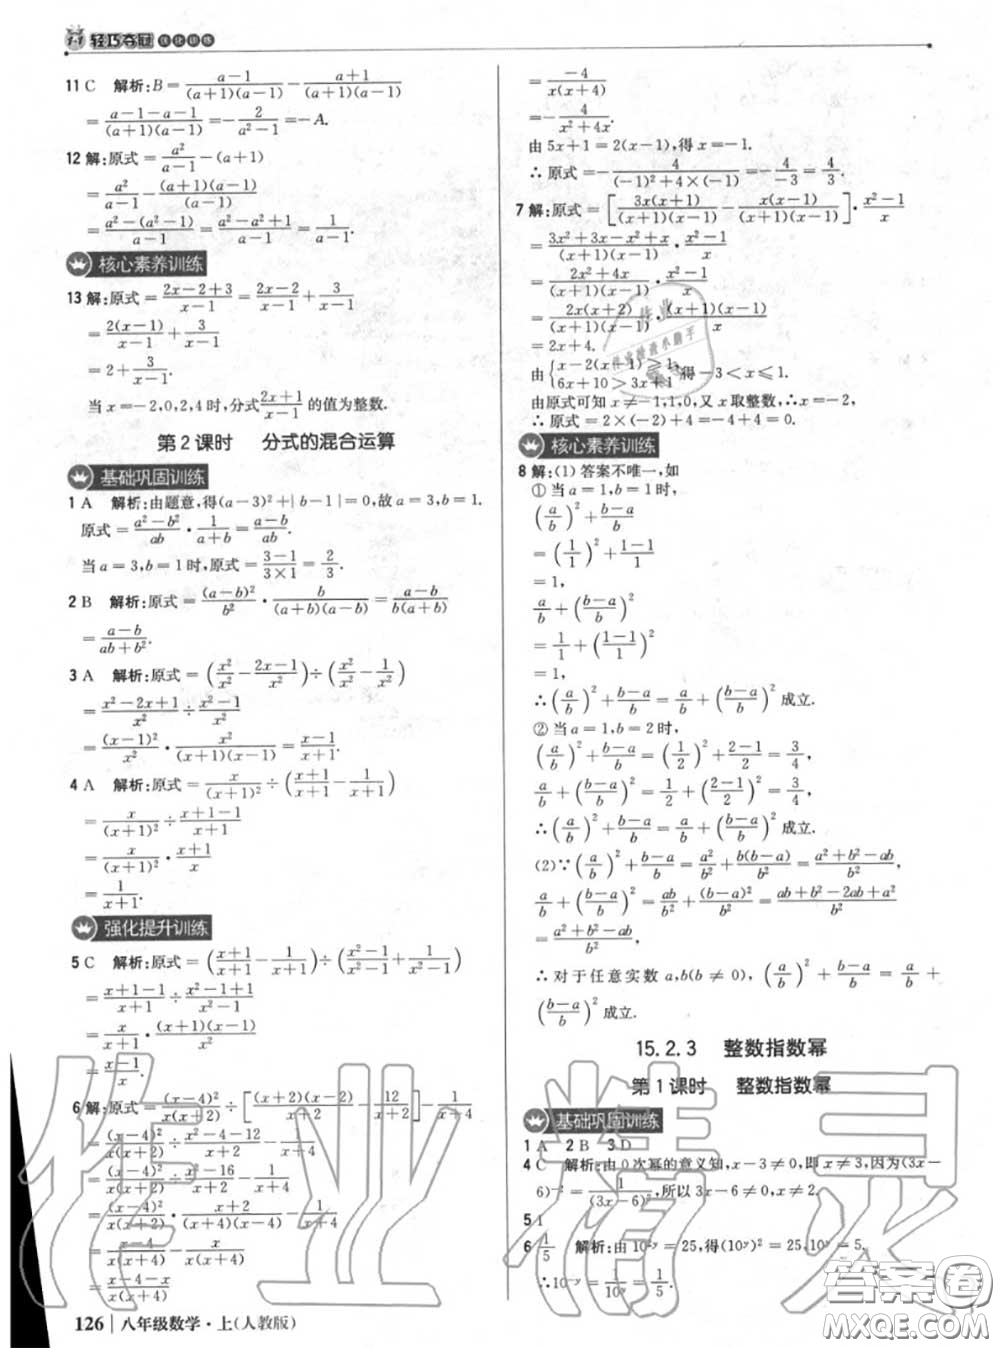 1+1 轻巧夺冠 优化训练
11 C 解析:B=\frac{a-1}{(a+1)(a-1)}-\frac{a+1}{(a+1)(a-1)}
=\frac{a-1-a-1}{(a+1)(a-1)}=-\frac{2}{a^2-1}=-A.
12 解:原式=\frac{a^2}{a-1}-(a+1)
=\frac{a^2}{a-1}-\frac{(a+1)(a-1)}{a-1}
=\frac{a^2-(a^2-1)}{a-1}
核心素养训练
13 解:原式=\frac{2x-2+3}{x-1}=\frac{2x-2}{x-1}+\frac{3}{x-1}
=\frac{2(x-1)}{x-1}+\frac{3}{x-1}
=2+\frac{3}{x-1}.
当x=-2,0,2,4时,分式\frac{2x+1}{x-1}的值为整数.
第2课时 分式的混合运算
基础巩固训练
1 A 解析:由题意,得(a-3)²+|b-1|=0,故a=3,b=1.
原式=\frac{a^2-b^2}{ab}·\frac{1}{a+b}=\frac{a-b}{ab}.
当a=3,b=1时,原式=\frac{3-1}{3×1}=\frac{2}{3}.
2 B 解析:原式=\frac{(a-b)^2}{b^2}·\frac{b}{(a+b)(a-b)}=\frac{a-b}{b(a+b)}
=\frac{a-b}{ab+b^2}.
3 A 解析:原式=(\frac{x^2}{x^2}-\frac{2x-1}{x^2})÷(\frac{x^2}{x^2}-\frac{1}{x^2})
=\frac{x^2-2x+1}{x^2}÷\frac{x^2-1}{x^2}
=\frac{(x-1)^2}{x^2}·\frac{x^2}{(x+1)(x-1)}=\frac{x-1}{x+1}.
4 A 解析:原式=\frac{x}{(x+1)^2}÷(\frac{x+1}{x+1}-\frac{1}{x+1})
=\frac{x}{(x+1)^2}÷\frac{x+1-1}{x+1}
=\frac{x}{(x+1)^2}·\frac{x+1}{x}
=\frac{1}{x+1}.
强化提升训练
5 C 解析:原式=(\frac{x+1}{x+1}-\frac{1}{x+1})÷(\frac{x^2-1}{x^2-1}+\frac{1}{x^2-1})
=\frac{x+1-1}{x+1}÷\frac{x^2-1+1}{x^2-1}
=\frac{x}{x+1}·\frac{(x+1)(x-1)}{x^2}
=\frac{x-1}{x}.
6 解:原式=\frac{(x-4)^2}{x(x+2)}÷[\frac{(x+2)(x-2)}{x+2}-\frac{12}{x+2}]-\frac{1}{x+4}
=\frac{(x-4)^2}{x(x+2)}÷\frac{x^2-4-12}{x+2}-\frac{1}{x+4}
=\frac{(x-4)^2}{x(x+2)}÷\frac{x^2-16}{x+2}-\frac{1}{x+4}
=\frac{(x-4)^2}{x(x+2)}·\frac{x+2}{(x+4)(x-4)}-\frac{1}{x+4}
=\frac{x-4}{x(x+4)}-\frac{x}{x(x+4)}
=\frac{x-4-x}{x(x+4)}
126 八年级数学·上(人教版)
=\frac{-4}{x(x+4)}
=-\frac{4}{x^2+4x}.
由5x+1=2(x-1),得x=-1.
∴原式=-\frac{4}{(-1)^2+4×(-1)}=-\frac{4}{-3}=\frac{4}{3}.
7 解:原式=[\frac{3x(x+1)}{(x+1)(x-1)}-\frac{x(x-1)}{(x+1)(x-1)}]·\frac{x^2-1}{x}
=\frac{3x^2+3x-x^2+x}{(x+1)(x-1)}·\frac{x^2-1}{x}
=\frac{2x^2+4x}{(x+1)(x-1)}·\frac{x^2-1}{x}
=\frac{2x(x+2)}{(x+1)(x-1)}·\frac{(x+1)(x-1)}{x}
=2x+4.
由{x-2(x-1)≥1, 6x+10>3x+1 得-3<x≤1.
由原式可知x≠-1,1,0,又x取整数,∴x=-2,
∴原式=2×(-2)+4=-4+4=0.
核心素养训练
8 解:(1)答案不唯一,如
①当a=1,b=1时,
(\frac{a}{b})^2+\frac{b-a}{b}
=(\frac{1}{1})^2+\frac{1-1}{1}
=1,
\frac{a}{b}+(\frac{b-a}{b})^2
=\frac{1}{1}+(\frac{1-1}{1})^2
=1,
∴(\frac{a}{b})^2+\frac{b-a}{b}=\frac{a}{b}+(\frac{b-a}{b})^2成立.
②当a=1,b=2时,
(\frac{a}{b})^2+\frac{b-a}{b}=(\frac{1}{2})^2+\frac{2-1}{2}=\frac{3}{4},
\frac{a}{b}+(\frac{b-a}{b})^2=\frac{1}{2}+(\frac{2-1}{2})^2=\frac{3}{4}
∴(\frac{a}{b})^2+\frac{b-a}{b}=\frac{a}{b}+(\frac{b-a}{b})^2成立.
(2)∵(\frac{a}{b})^2+\frac{b-a}{b}=\frac{a^2}{b^2}+\frac{b(b-a)}{b^2}=\frac{a^2+b^2-ab}{b^2},
\frac{a}{b}+(\frac{b-a}{b})^2=\frac{ab}{b^2}+\frac{(b-a)^2}{b^2}=\frac{ab+b^2-2ab+a^2}{b^2}
=\frac{a^2+b^2-ab}{b^2},
∴对于任意实数a,b(b≠0),(\frac{a}{b})^2+\frac{b-a}{b}=\frac{a}{b}+
(\frac{b-a}{b})^2成立.
15.2.3 整数指数幂
第1课时 整数指数幂
基础巩固训练
1 A 2 B 3 D
4 C 解析:由0次幂的意义知,x-3≠0,即x≠3,因为(3x-
6)^{-2}=\frac{1}{(3x-6)^2},所以3x-6≠0,x≠2.
5 1
6 \frac{1}{5} 解析:由10^{2y}=25,得(10^y)²=25,10^y=5,
∴10^{-y}=\frac{1}{10^y}=\frac{1}{5}.
作业精灵
答案圈